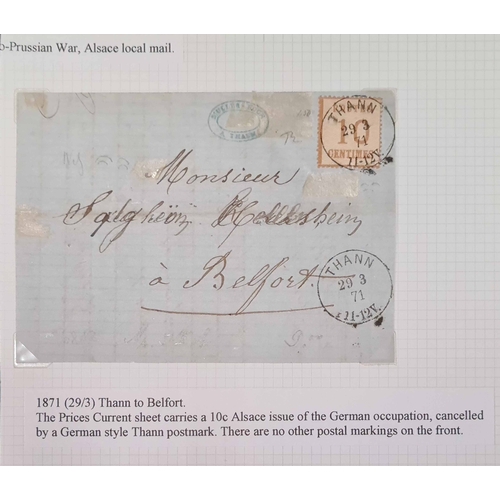 o-Prussian War, Alsace local mail.
THANN
29 3
71
11-12V.
10
CENTIMES
Monsieur
à Belfort.
THANN
29 3
71
11-12V.
1871 (29/3) Thann to Belfort.
The Prices Current sheet carries a 10c Alsace issue of the German occupation, cancelled
by a German style Thann postmark. There are no other postal markings on the front.